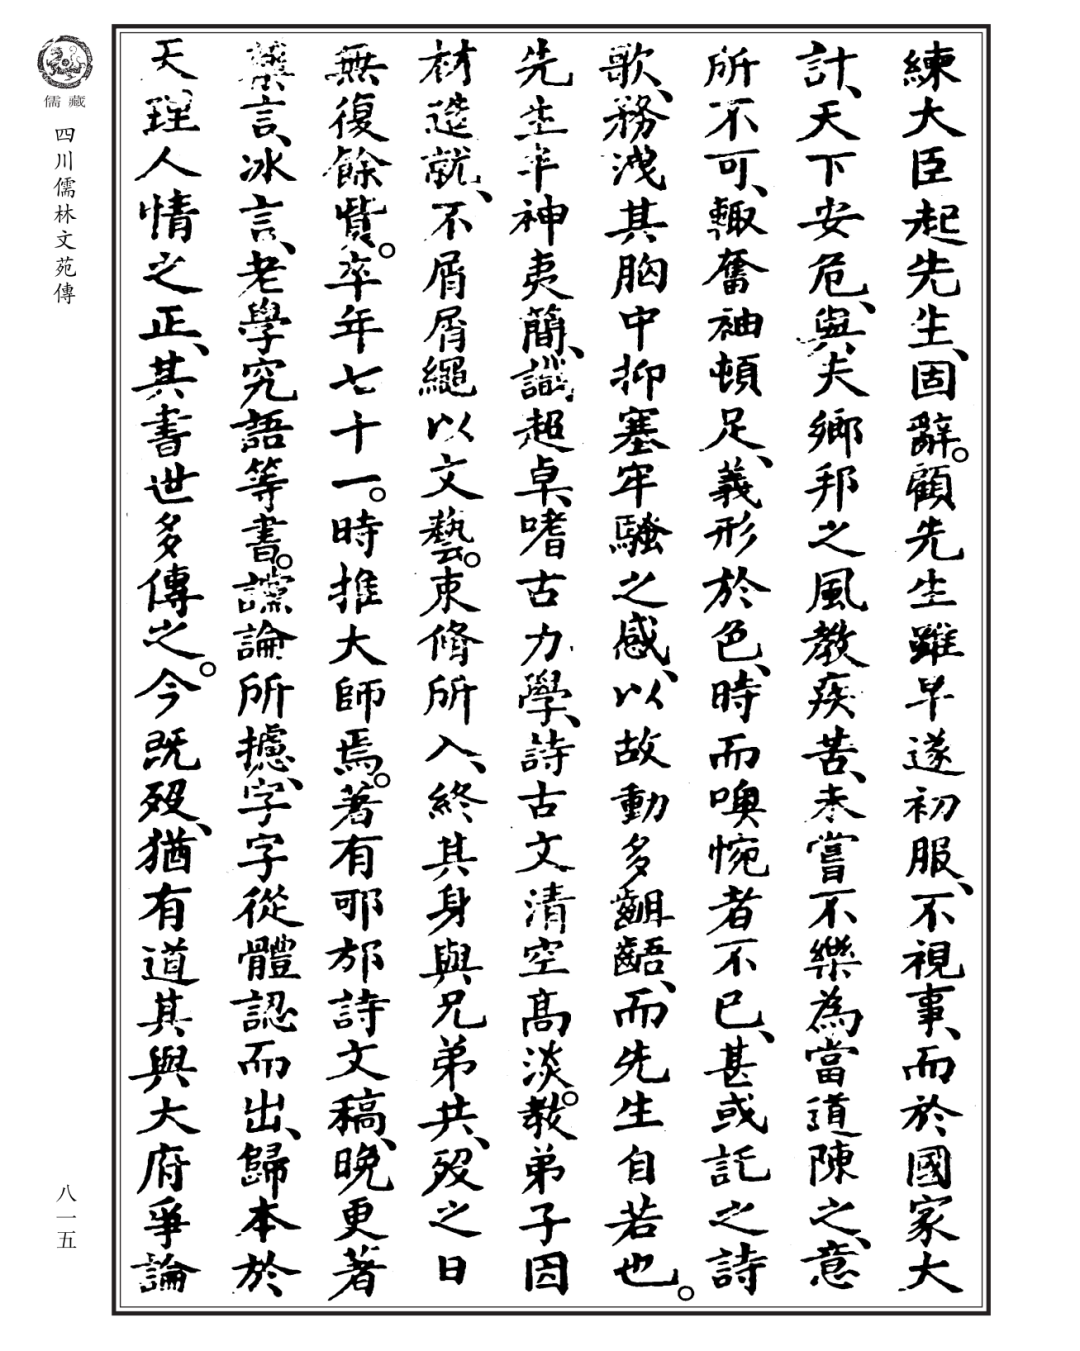 練大臣起先生、固辭。顧先生雖早遂初服、不視事、而於國家大
計、天下安危、與夫鄉邦之風教疾苦、未嘗不樂為當道陳之、意
所不可、輒奮袖頓足、義形於色、時而噢惋者不已、甚或託之詩
歌、務洩其胸中抑塞牢騷之感、以故動多齟齬、而先生自若也。
先生丰神夷簡、識超卓、嗜古力學、詩古文清空高淡。教弟子因
材造就、不屑屑繩以文藝。束脩所入、終其身與兄弟共、歿之日
無復餘貲。卒年七十一。時推大師焉。著有邛邡詩文稿、晚更著
檗言、冰言、老學究語等書。讜論所攄、字字從體認而出、歸本於
天理人情之正、其書世多傳之。今既歿、猶有道其與大府爭論
儒藏
四川儒林文苑傳
八一五